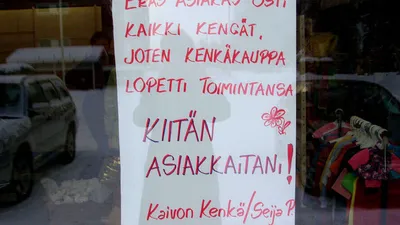 ERÄS ASIAKAS OSTI
KAIKKI KENGÄT,
JOTEN KENKÄKAUPPA
LOPETTI TOIMINTANSA
KIITÄN
ASIAKKAITANI!
Kaivon Kenkä/Seija P.